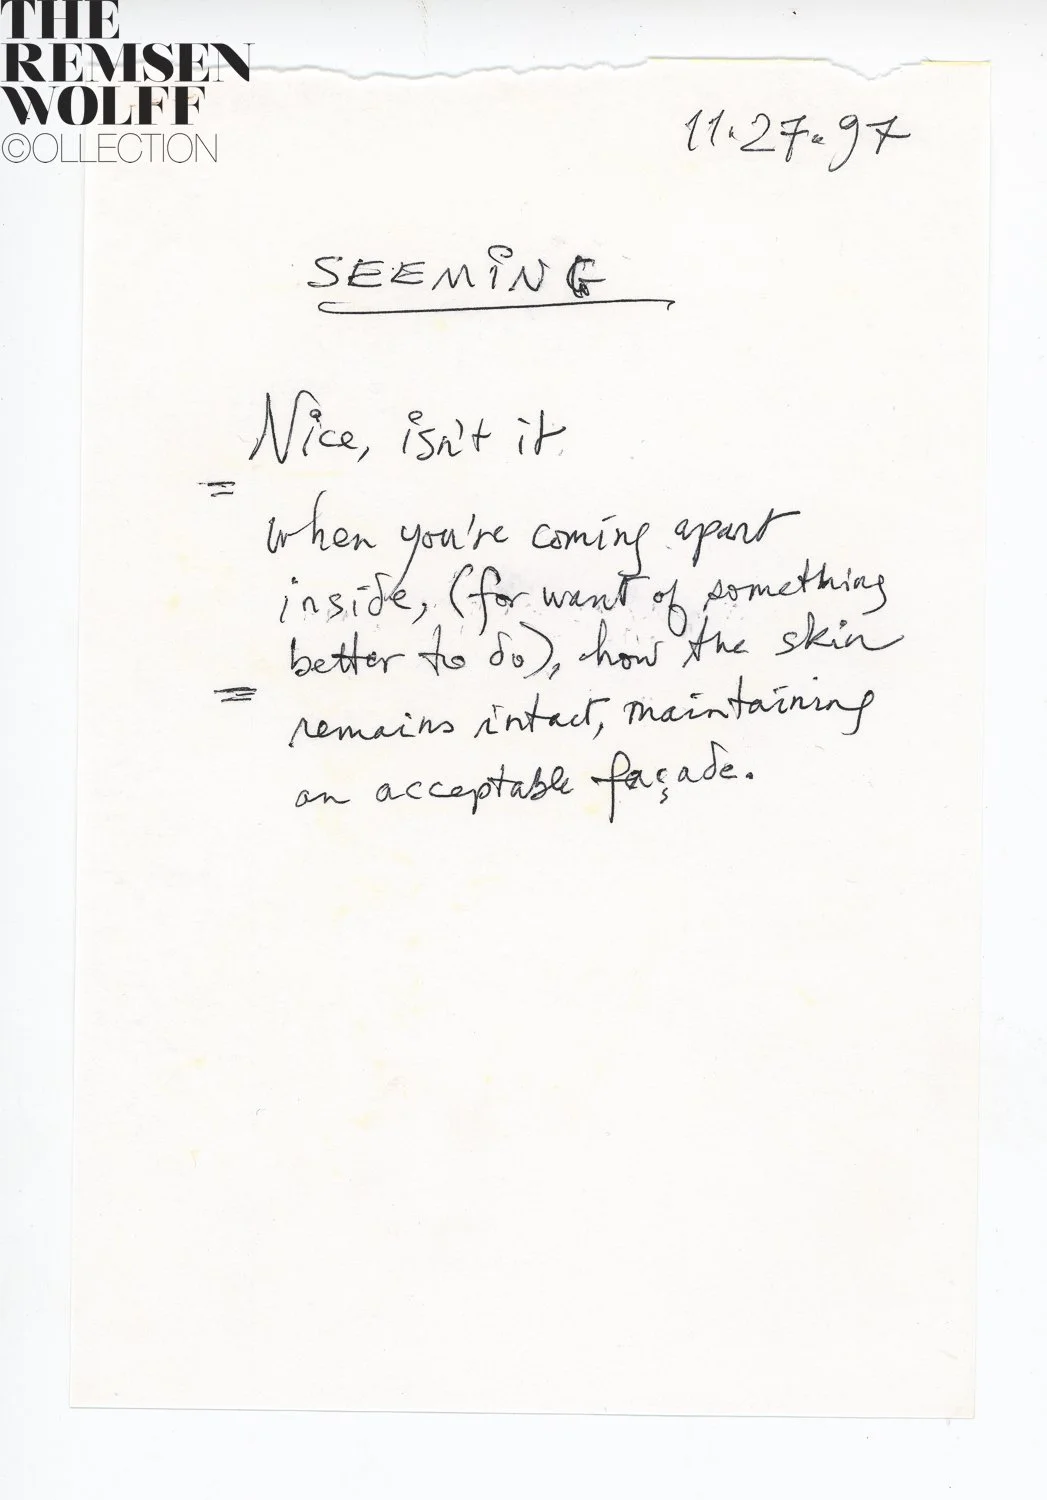 THE
REMSEN
WOLFF
©OLLECTION
11.27.97
SEEMING
Nice, isn't it
=
when you're coming apart
inside, (for want of something
better to do), how the skin
=
remains intact, maintaining
an acceptable façade.